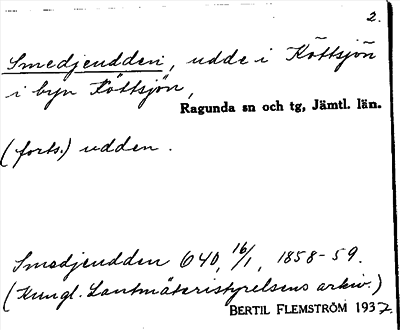 2.
Smedjeudden, udde i Köttsjön
i byn Köttsjön,
Ragunda sn och tg, Jämtl. län.
(forts.) udden.
Smedjeudden 640, 16/1, 1858-59.
(Kungl. Lantmäteristyrelsens arkiv.)
BERTIL FLEMSTRÖM 1937.